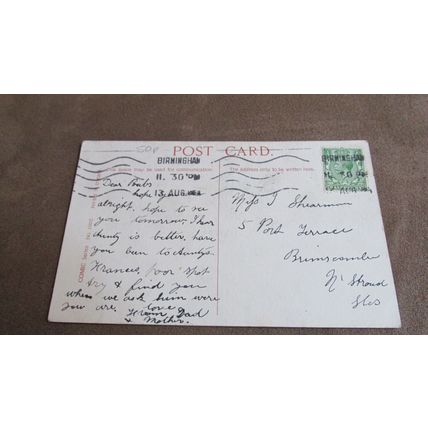 50P
POST CARD.
BIRMINGHAM
11. 30 PM
13 AUG
This space may be used for communication.
The address only to be written here.
BIRMINGHAM
11. 30 PM
COMIC Series No.
Dear Babs
hope you
alright, hope to see
you tomorrow. I hear
Aunty is better, have
you been to Aunty
Frances, poor Spot
try & find you
when we ask him were
you are. love
From Dad
& Mother.
Miss I Shearmn
5 Port Terrace
Brimscombe
Nr Stroud
Glos